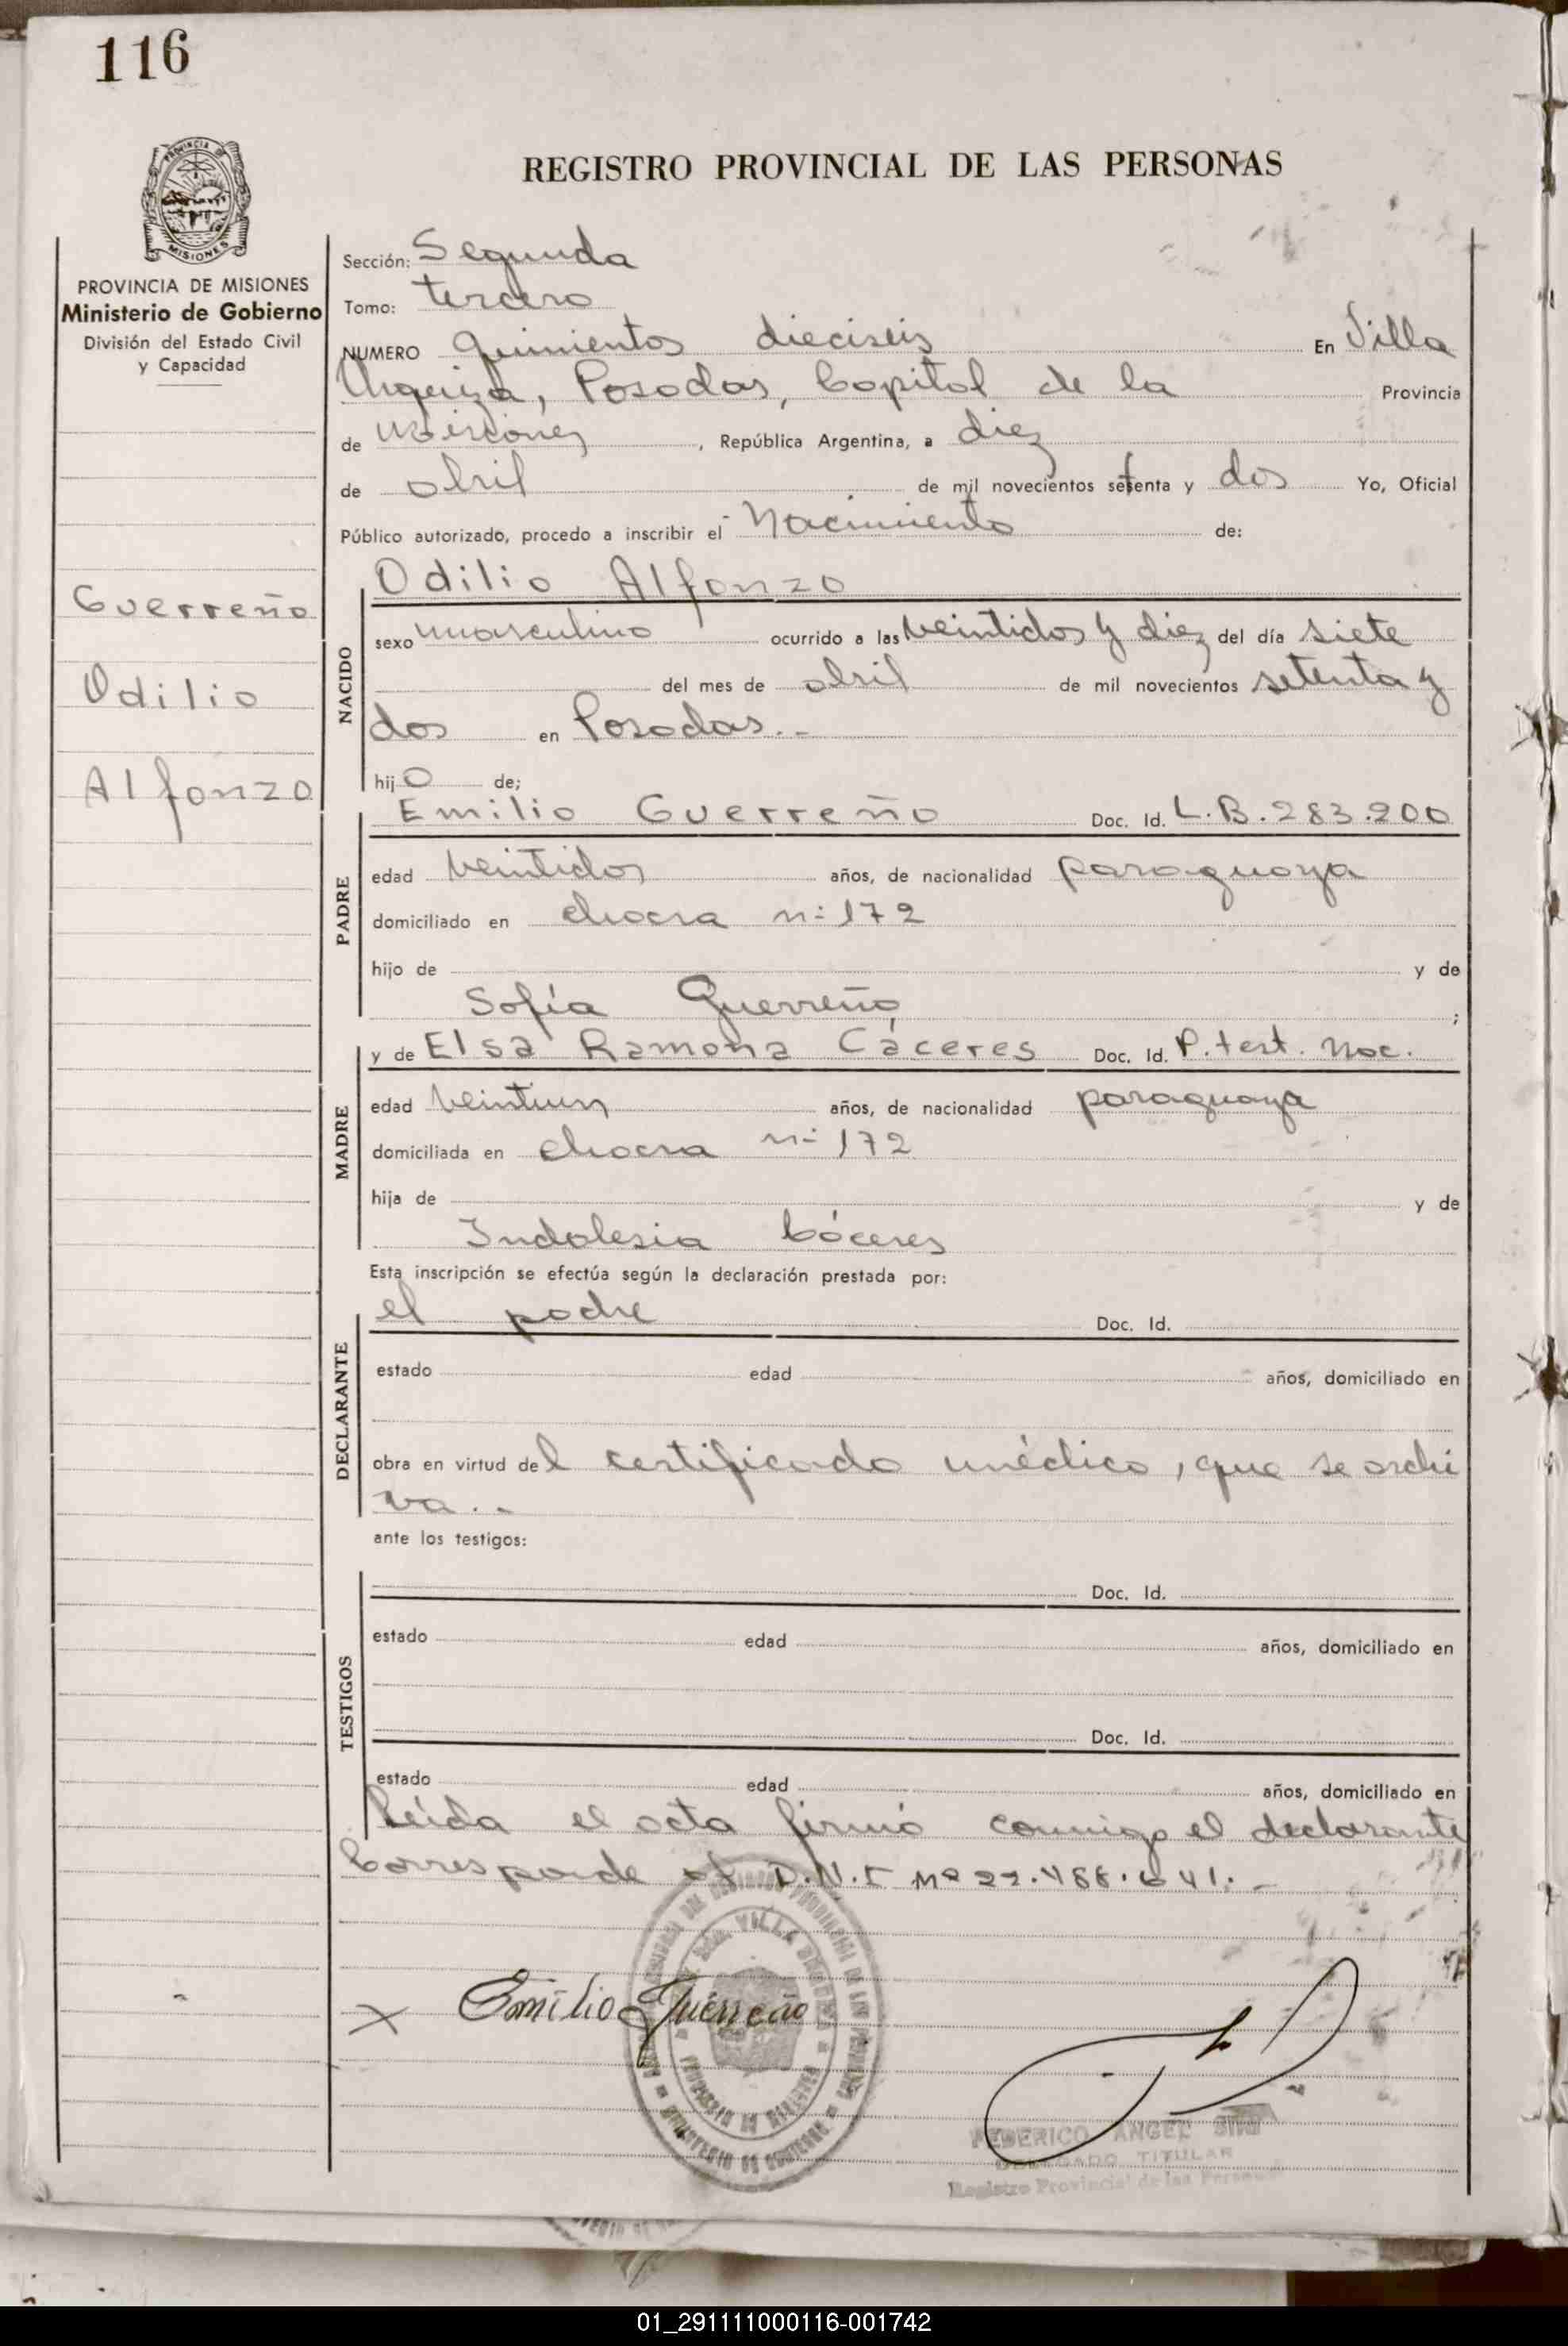 116
PROVINCIA DE MISIONES
Ministerio de Gobierno
División del Estado Civil
y Capacidad
Guerreño
Odilio
Alfonzo
REGISTRO PROVINCIAL DE LAS PERSONAS
Sección: Segunda
Tomo: tercero
NUMERO quinientos dieciseis En Villa
Urquiza, Posadas, Capital de la Provincia
de Misiones, República Argentina, a diez
de abril de mil novecientos setenta y dos Yo, Oficial
Público autorizado, procedo a inscribir el Nacimiento de:
Odilio Alfonzo
NACIDO
sexo masculino ocurrido a las veintidos y diez del día siete
del mes de abril de mil novecientos setenta y
dos en Posadas.-
hijo de;
Emilio Guerreño Doc. Id. L.B. 283.200
PADRE
edad veintidos años, de nacionalidad paraguaya
domiciliado en chacra nº 172
hijo de y de
Sofía Guerreño ;
y de Elsa Ramona Cáceres Doc. Id. P. test. nac.
MADRE
edad veintiun años, de nacionalidad paraguaya
domiciliada en chacra nº 172
hija de y de
Indalesia Cáceres
Esta inscripción se efectúa según la declaración prestada por:
el padre Doc. Id.
DECLARANTE
estado edad años, domiciliado en
obra en virtud del certificado médico, que se archi
va.-
ante los testigos:
Doc. Id.
TESTIGOS
estado edad años, domiciliado en
Doc. Id.
estado edad años, domiciliado en
Leída el acta firmó conmigo el declarante
Corresponde al D.N.I Nº
Emilio Guerreño
FEDERICO ANGEL
DELEGADO TITULAR
Registro Provincial de las Personas
01_291111000116-001742